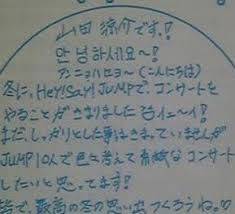 山田涼介です!
안녕하세요~!
アンニョハセヨ~(こんにちは)
冬に、Hey!Say!JUMPで、コンサートを
やることがきまりました イェ~イ!
まだ、しっかりとした事はきまっていませんが
JUMP10人で色々考えて素敵なコンサート
したいと思ってます!
皆で、最高の冬の思い出つくろうね。♡